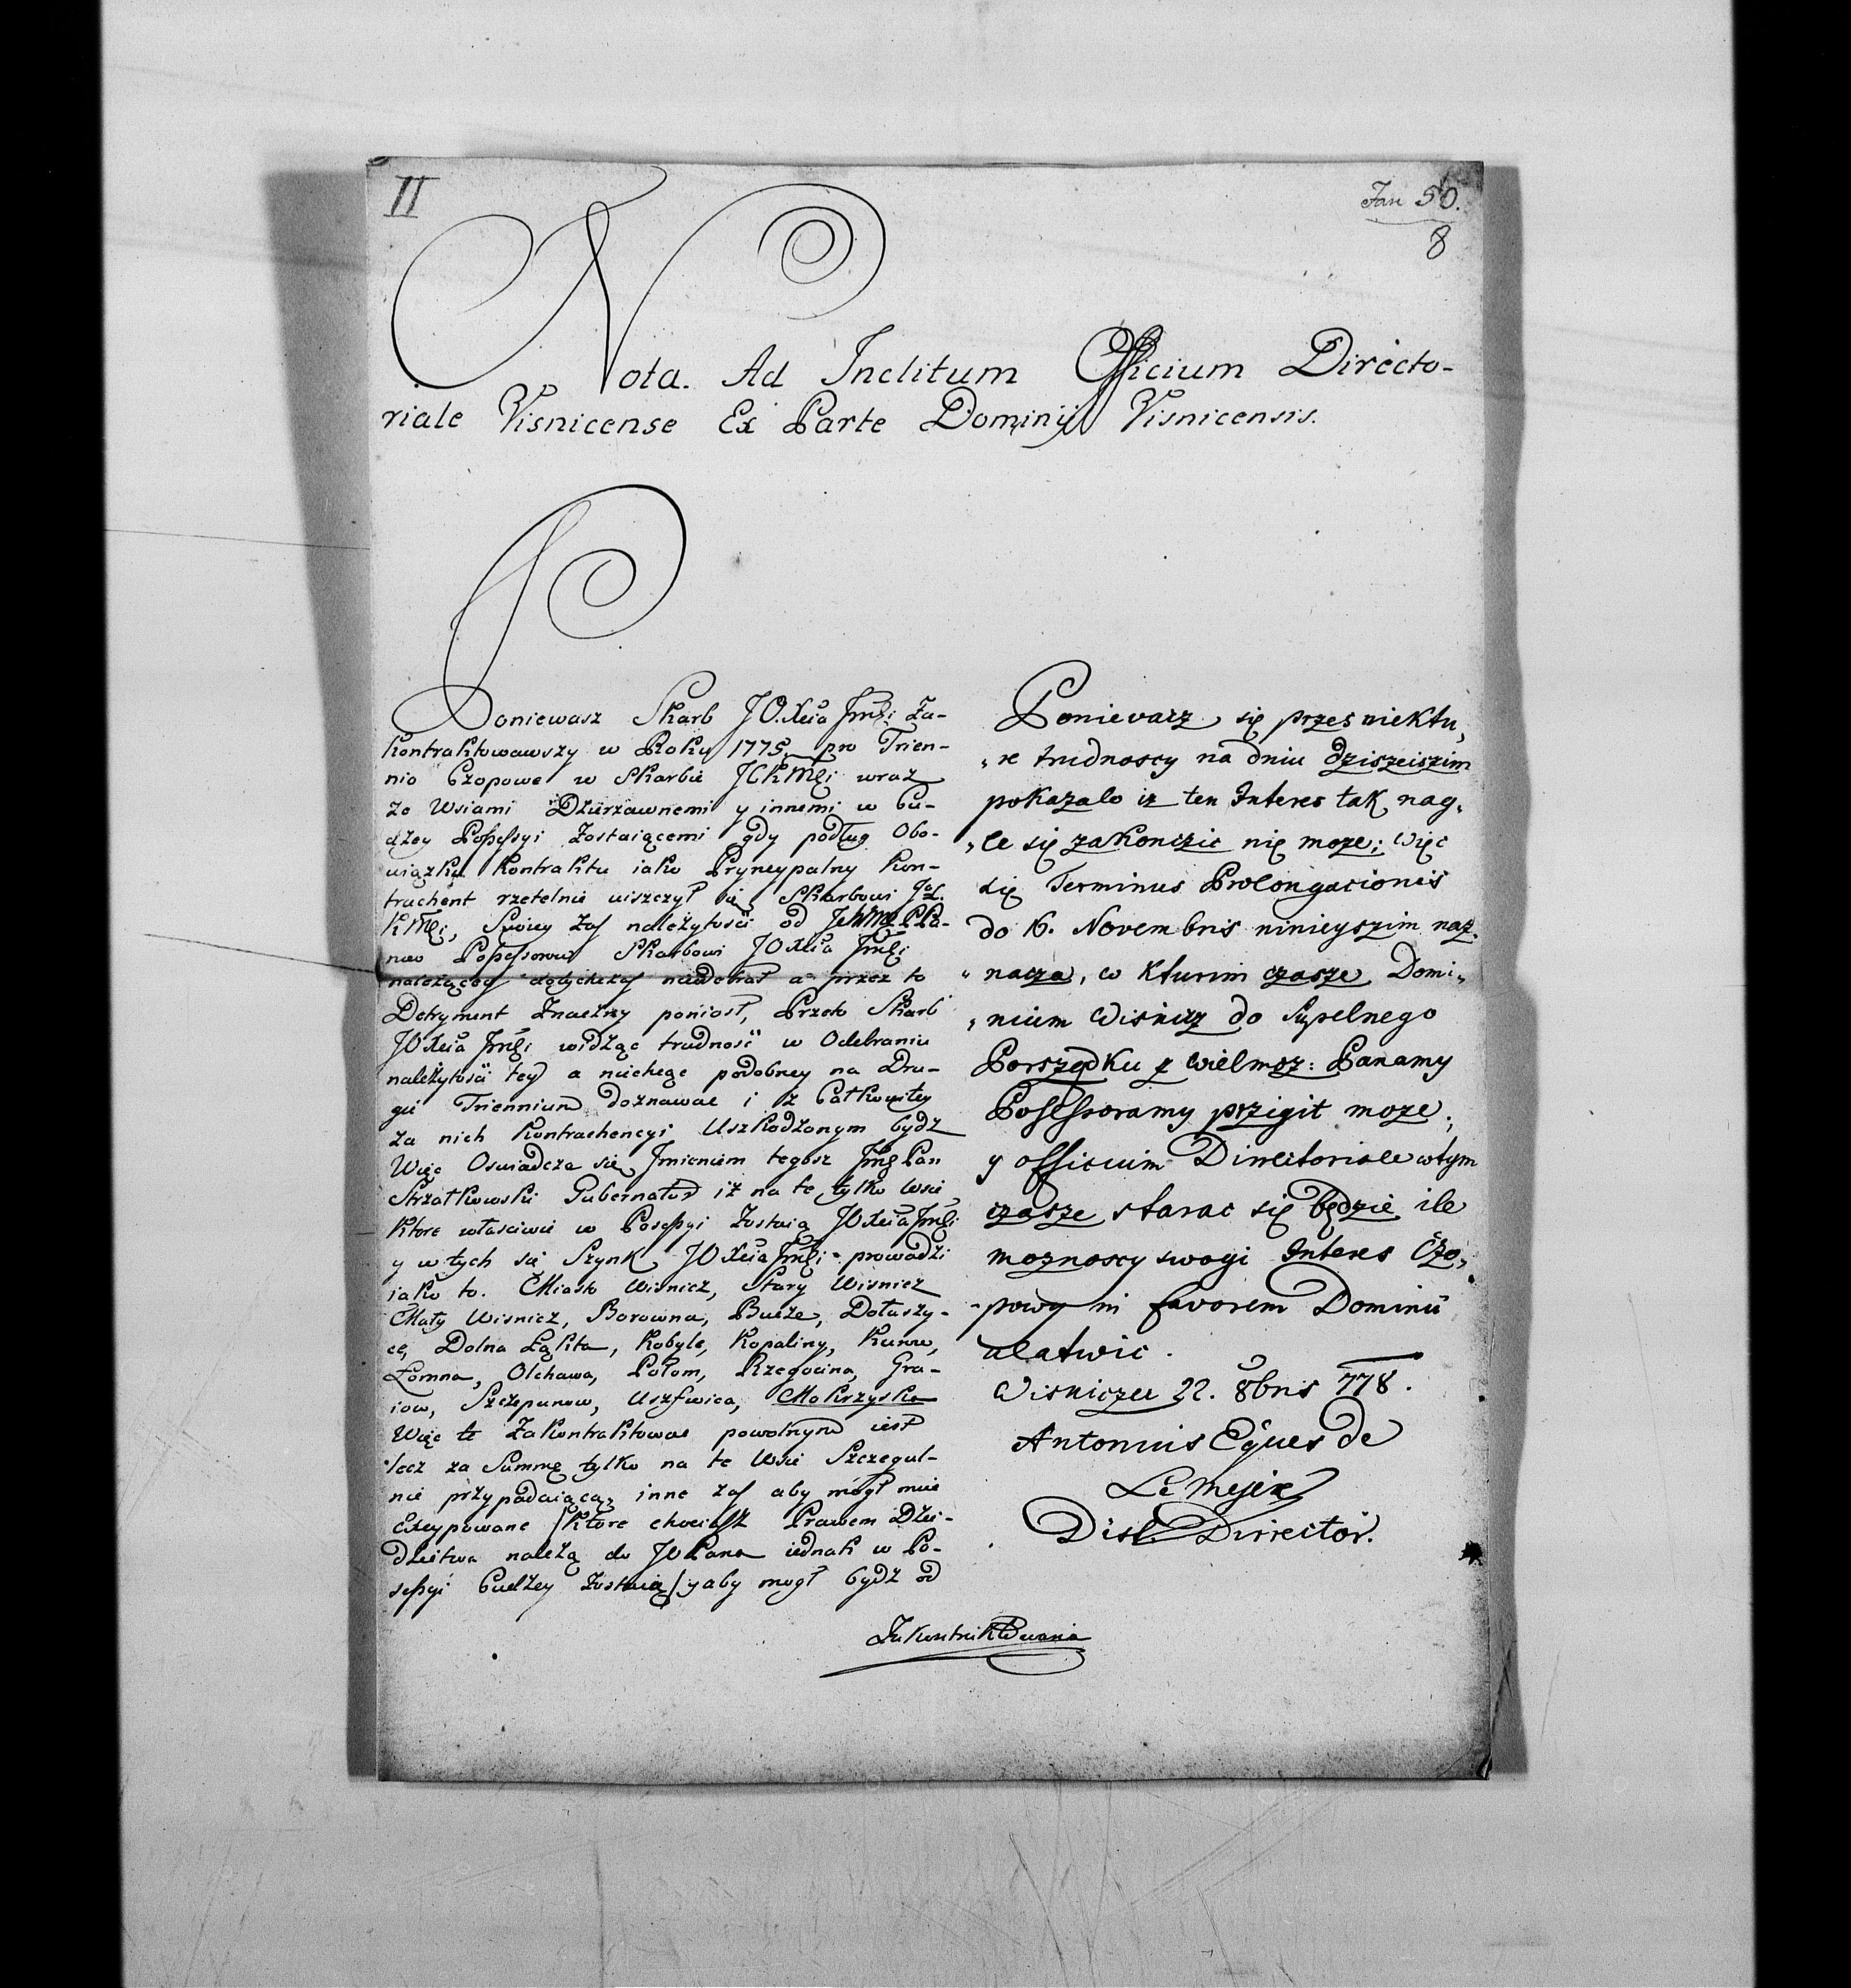 II
Fan 50.
8
Nota. Ad Inclitum Officium Directo-
riale Visnicense Ex Parte Dominij Visnicensis.
Poniewasz Skarb JO. Xcia Jmći Za-
kontraktowawszy w Roku 1775. pro Trien-
nio Czopowe w Skarbie JCKMći wraz
ze Wsiami Dzierzawnemi y innemi w Cu-
dzey Possessyi Zostaiącemi gdy podług Obo-
wiązku Kontraktu iako Pryncypalny Kon-
trachent rzetelnie uiszczył się Skarbowi
KMći, Swoiey zaś należytości od PPa-
now Possessorow Skarbowi JOXcia Jmći
należącey dotychczas nieodebrał a przez to
Detryment Znaczny poniosł, Przeto Skarb
JOXcia Jmći widząc trudność w Odebraniu
należytości tey a niechcąc podobney na Dru-
gie Triennium doznawac i z Całkowitey
za nich Kontrachencyi Uszkodzonym bydz
Więc Oswiadcza się Jmieniem tegosz Jmć Pan
Strzałkowski Gubernator iż na te tylko Wsie
Ktore własciwie w Possessyi Zostaią JOXcia Jmći
y w tych się Szynk JOXcia Jmći prowadzi
iako to. Miasto Wisnicz, Stary Wisnicz
Mały Wisnicz, Borowna, Bucze, Dołuszy-
ce, Dolna Łąkta, Kobyle, Kopaliny, Kurow,
Łomna, Olchawa, Połom, Rzegocina, Gra-
iow, Szczepanow, Uszwica, Mokrzyska
Więc te Zakontraktowac powolnym iest
lecz za Summę tylko na te Wsie Szczegul-
nie przypadaiącą, inne zaś aby mógł mieć
Excypowane /Ktore chociasz Prawem Dzie-
dzictwa należą do JO Pana iednak w Po-
sessyi Cudzey Zostaią/ y aby mogł bydz od
Zakontraktowania
Ponievarz się przes niektu,
"re trudnoscy na dniu dziszeiszim
pokazalo iz ten Interes tak nag,
"le się zakonczic nię moze; więc
się Terminus Prolongacionis
do 16. Novembris ninieyszim naz,
"nacza, w kturim czasze Domi,
"nium Wisnicz do Supelnego
Porsządku z Wielmoz: Panamy
Possessoramy przigit moze;
y Officium Directoriale wtym
czasze starac się będzie ile
moznoscy swogi Interes Czo,
-powy in favorem Dominii
ulatwic.
Wisniczu 22. 8bris 778.
Antonius Eques de
Le
Dist. Director.